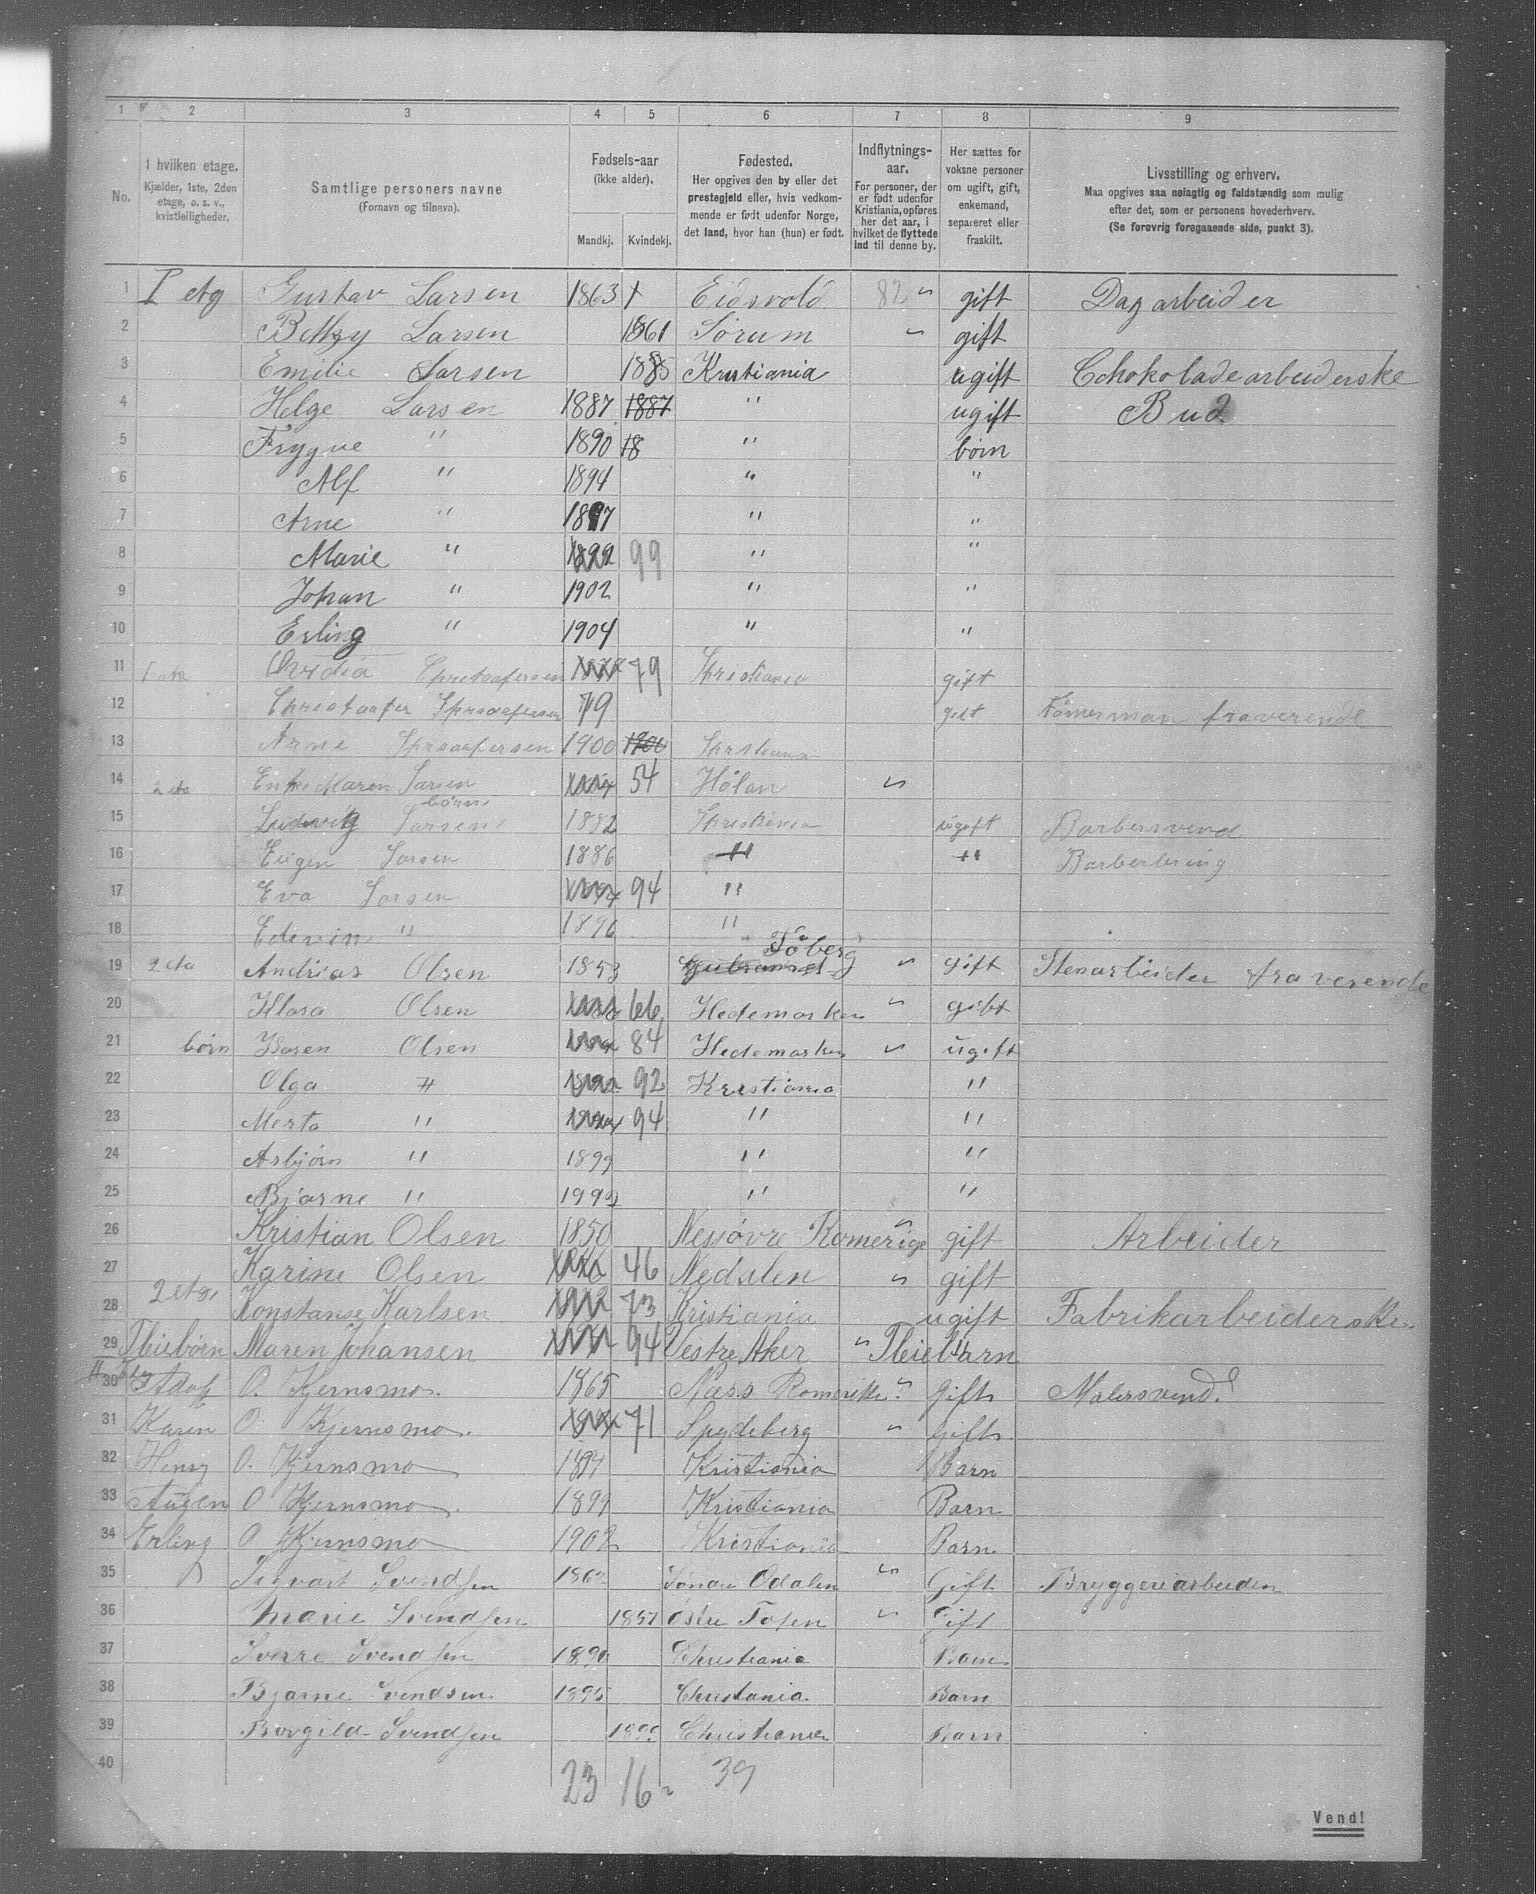 1 2 3 4 5 6 7 8 9
No.
I hvilken etage.
Kjælder, 1ste, 2den
etage, o. s. v.,
kvistleiligheder.
Samtlige personers navne
(Fornavn og tilnavn).
Fødsels-aar
(ikke alder).
Mandkj. Kvindekj.
Fødested.
Her opgives den by eller det
prestegjeld eller, hvis vedkom-
mende er født udenfor Norge,
det land, hvor han (hun) er født.
Indflytnings-
aar.
For personer, der
er født udenfor
Kristiania, opføres
her det aar, i
hvilket de flyttede
ind til denne by.
Her sættes for
voksne personer
om ugift, gift,
enkemand,
separeret eller
fraskilt.
Livsstilling og erhverv.
Maa opgives saa nøiagtig og fuldstændig som mulig
efter det, som er personens hovederhverv.
(Se forøvrig foregaaende side, punkt 3).
1 I etg Gustav Larsen 1863 Eidsvold 82 gift Dagarbeider
2 Betzy Larsen 1861 Sørum gift
3 Emilie Larsen 1885 Kristiania ugift Chokoladearbeiderske
4 Helge Larsen 1887 1887 " ugift Bud
5 Trygve " 1890 18 " børn
6 Alf " 1894 " "
7 Arne " 1897 " "
8 Marie " 1899 99 " "
9 Johan " 1902 " "
10 Erling " 1904 " "
11 1 eta Ovidia 79 Christiania gift
12 79 gift Tømerman fraverende
13 Arne 1900 1900
14 2 eta Enke Maren Larsen 54 Høland
børn
15 Ludevig Larsen 1882 Christiania ugift Barbersvend
16 Eugen Larsen 1886 " " Barberlæring
17 Eva Larsen 94 "
18 Edevin " 1896 "
19 2 eta Andrias Olsen 1853 Toberg gift Stenarbeider fraverende
20 Klara Olsen 66 Hedemarken gift
21 børn Karen Olsen 84 Hedemarken ugift
22 Olga " 92 Kristiania "
23 Merta " 94 " "
24 Asbjørn " 1899 " "
25 Bjarne " " "
26 Kristian Olsen 1850 Romerige gift Arbeider
27 Karine Olsen 46 Nedalen gift
28 2 etg. Konstanse Karlsen 73 Kristiania ugift Fabrikarbeiderske
29 Pleiebørn Maren Johansen 94 Vestre Aker Pleiebarn
30 Adolf O. Kjernsmo. 1865 Næss Romerike Gift Malersvend.
31 Karen O. Kjernsmo. 71 Spydeberg Gift
32 Henry O. Kjernsmo 1894 Kristiania Barn
33 Augen O Kjernsmo. 1899 Kristiania Barn
34 Erling O Kjernsmo 1902 Kristiania Barn
35 Sigvart Svendsen Søndre Odalen Gift Bryggeriarbeider
36 Marie Svendsen 1857 Østre Toten Gift
37 Sverre Svendsen 1890 Christiania Barn
38 Bjarne Svendsen 1895 Christania Barn
39 Borgild Svendsen 1899 Christiania Barn
40
23 16 39
Vend!